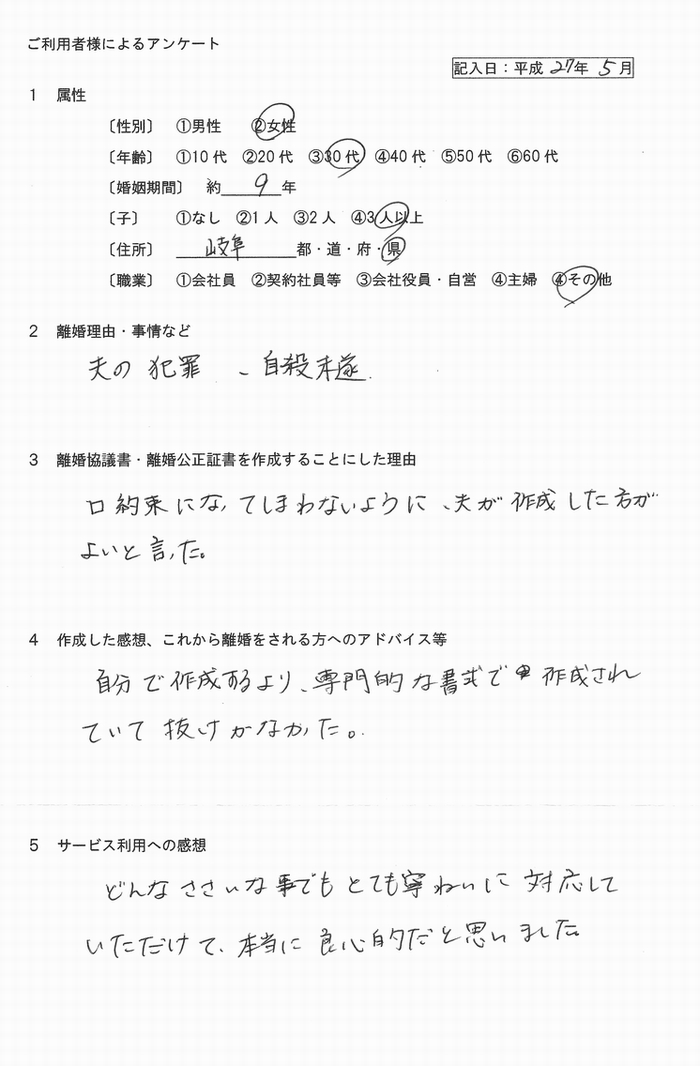 ご利用者様によるアンケート
記入日：平成 27年 5月
1 属性
〔性別〕 ①男性 ②女性
〔年齢〕 ①10代 ②20代 ③30代 ④40代 ⑤50代 ⑥60代
〔婚姻期間〕 約 9 年
〔子〕 ①なし ②1人 ③2人 ④3人以上
〔住所〕 岐阜 都・道・府・県
〔職業〕 ①会社員 ②契約社員等 ③会社役員・自営 ④主婦 ④その他
2 離婚理由・事情など
夫の犯罪、自殺未遂.
3 離婚協議書・離婚公正証書を作成することにした理由
口約束になってしまわないように、夫が作成した方が
よいと言った。
4 作成した感想、これから離婚をされる方へのアドバイス等
自分で作成するより、専門的な書式で作成され
ていて抜けがなかった。
5 サービス利用への感想
どんなささいな事でもとても寧ねいに対応して
いただけて、本当に良心的だと思いました。